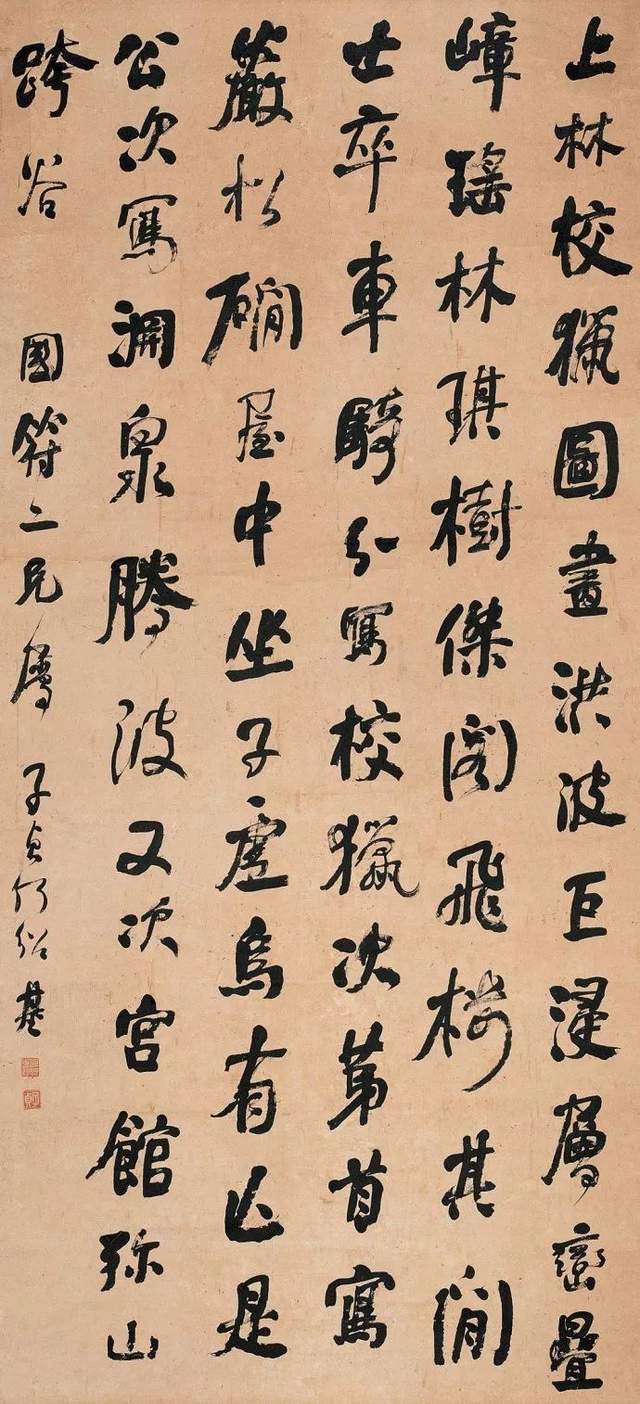 上林校獵圖畫洪波巨浸層巒疊
嶂瑤林琪樹傑閣飛樓其間
士卒車騎以寫校獵次第首寫
巖松磵屋中坐子虛烏有亡是
公次寫淵泉騰波又次宮館弥山
跨谷 國符二兄屬 子貞何紹基